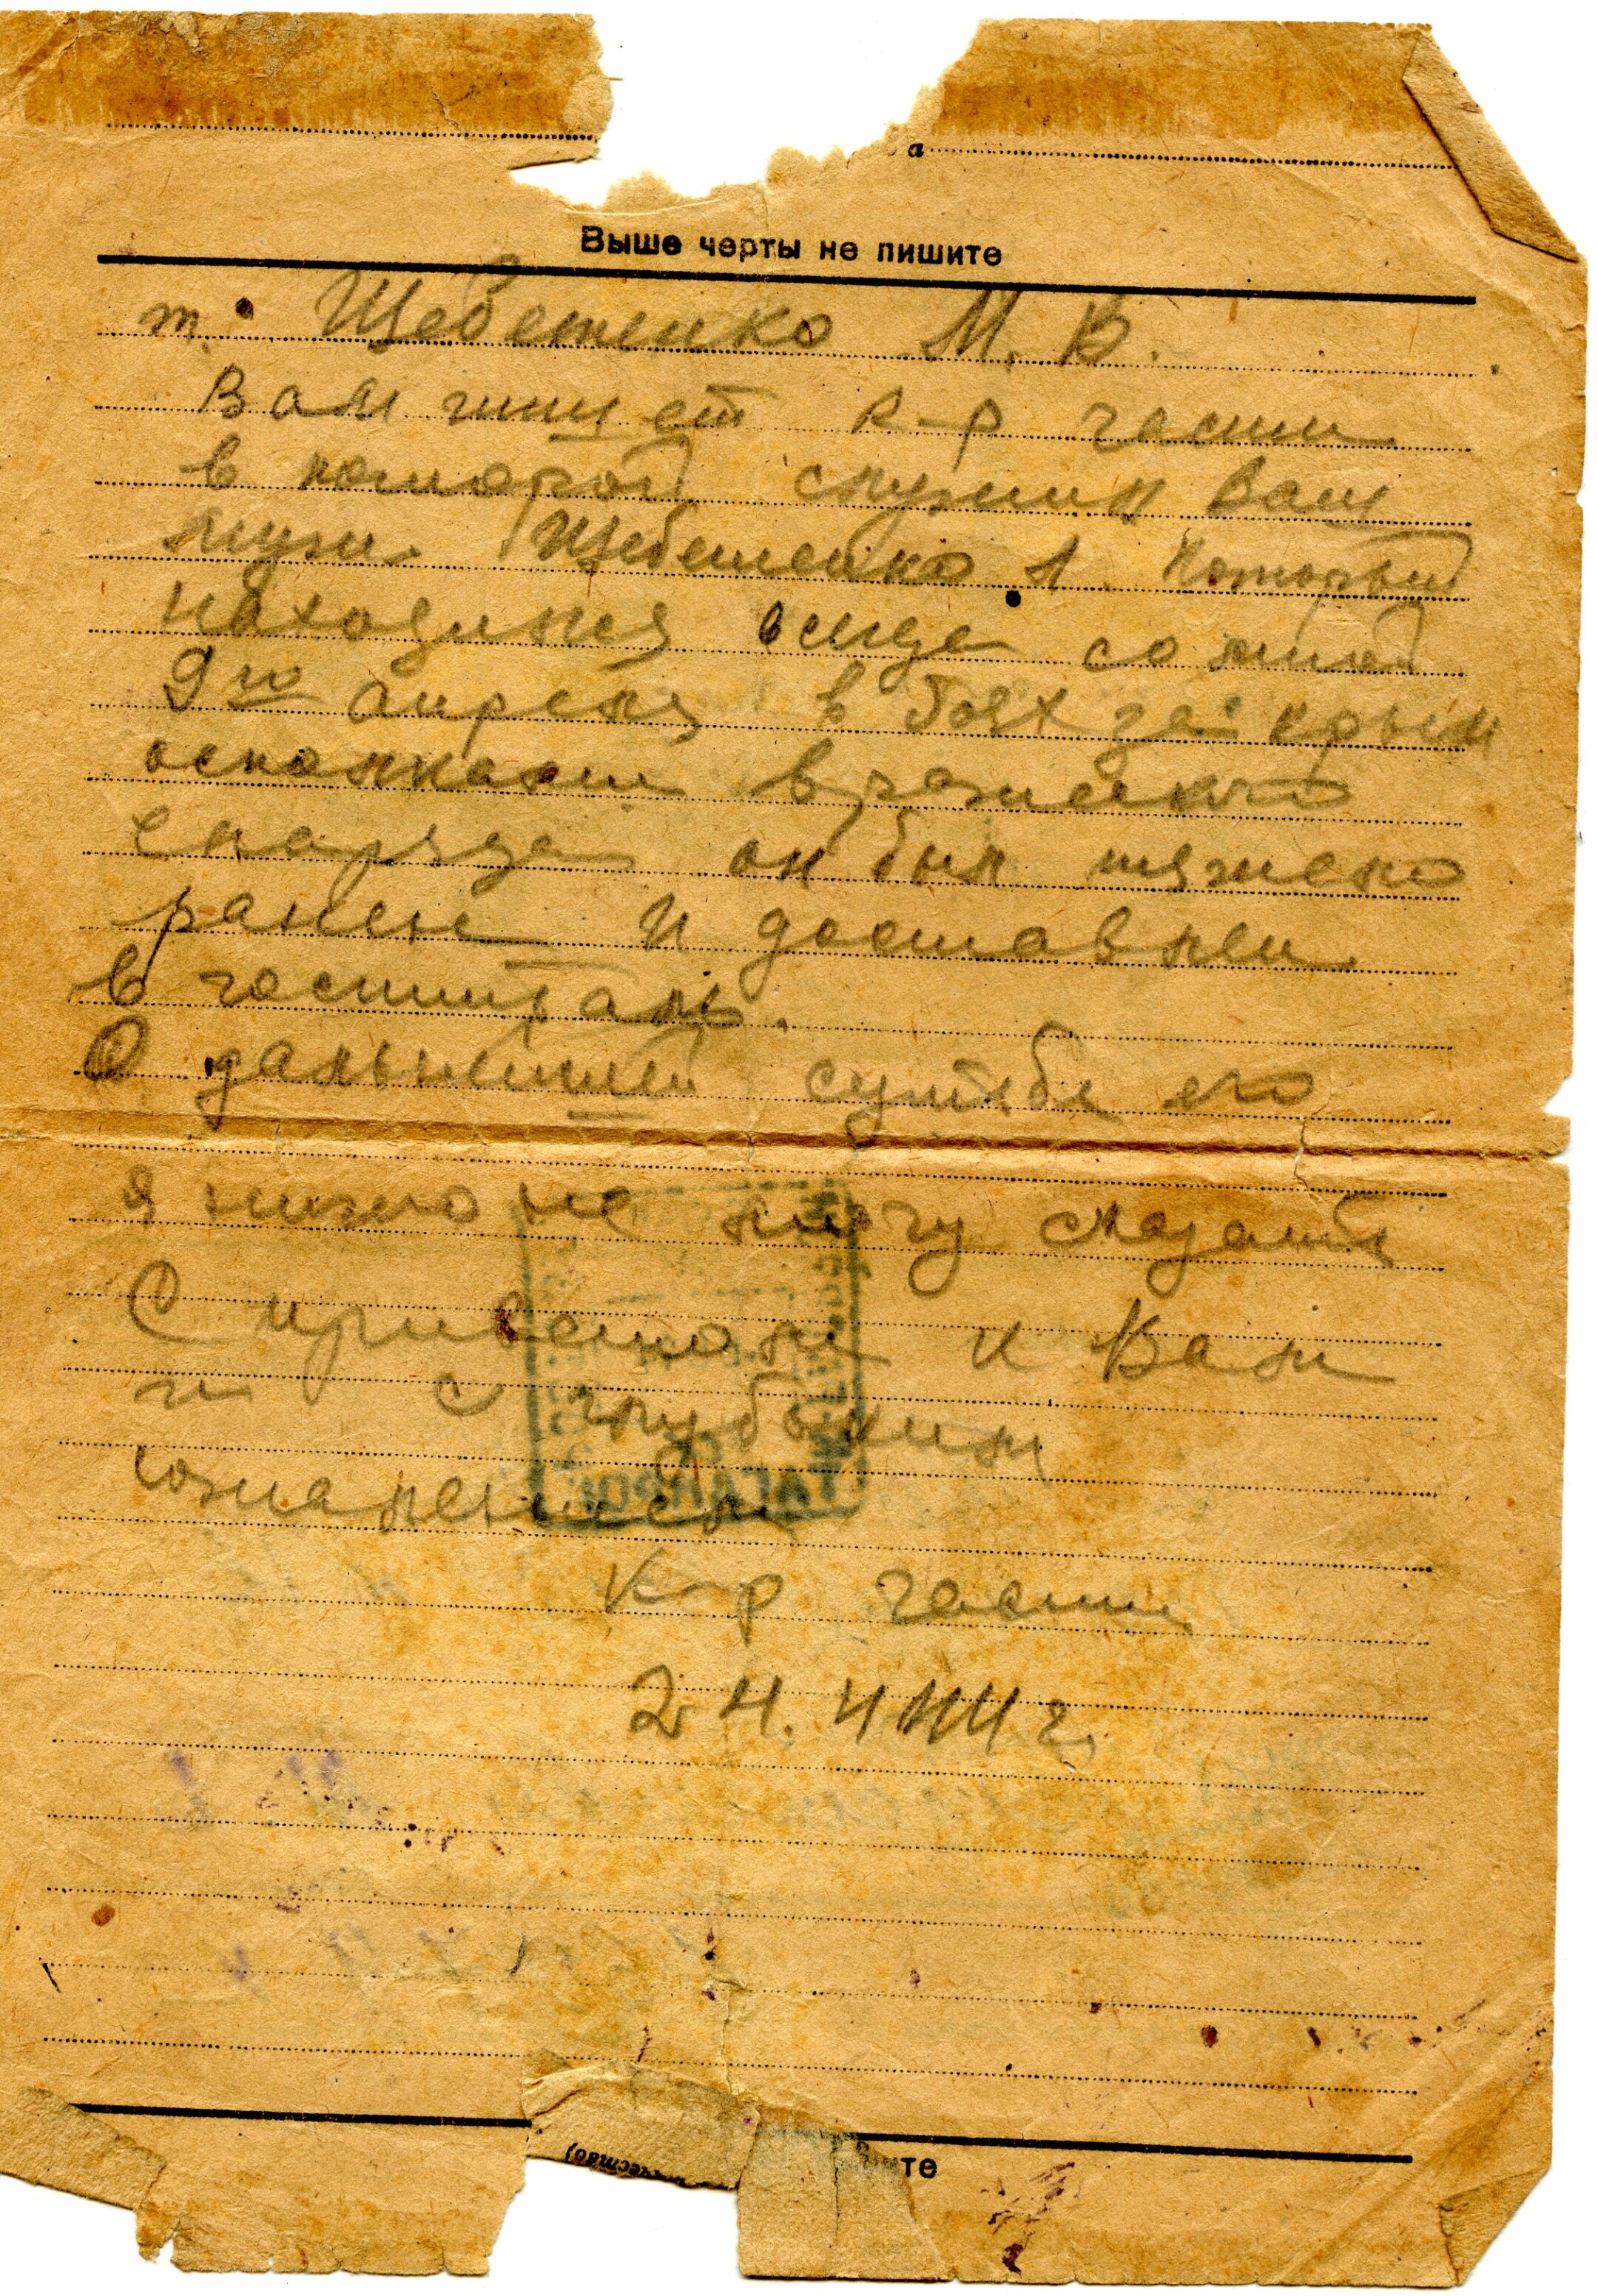 а
Выше черты не пишите
т. Щебетенко М. В.
Вам пишет к-р части
в которой служил Ваш
муж Щебетенко Л. Который
находился всегда со мной
9го Апреля в боях за Крым
осколками вражеского
снаряда он был тяжело
ранен и доставлен
в госпиталь.
О дальнейшей судьбе его
я ничего не могу сказать
С приветом к Вам
и с глубоким
К-р части
24. 4 44 г.
ТАГАНРОГ
(отчество)
те